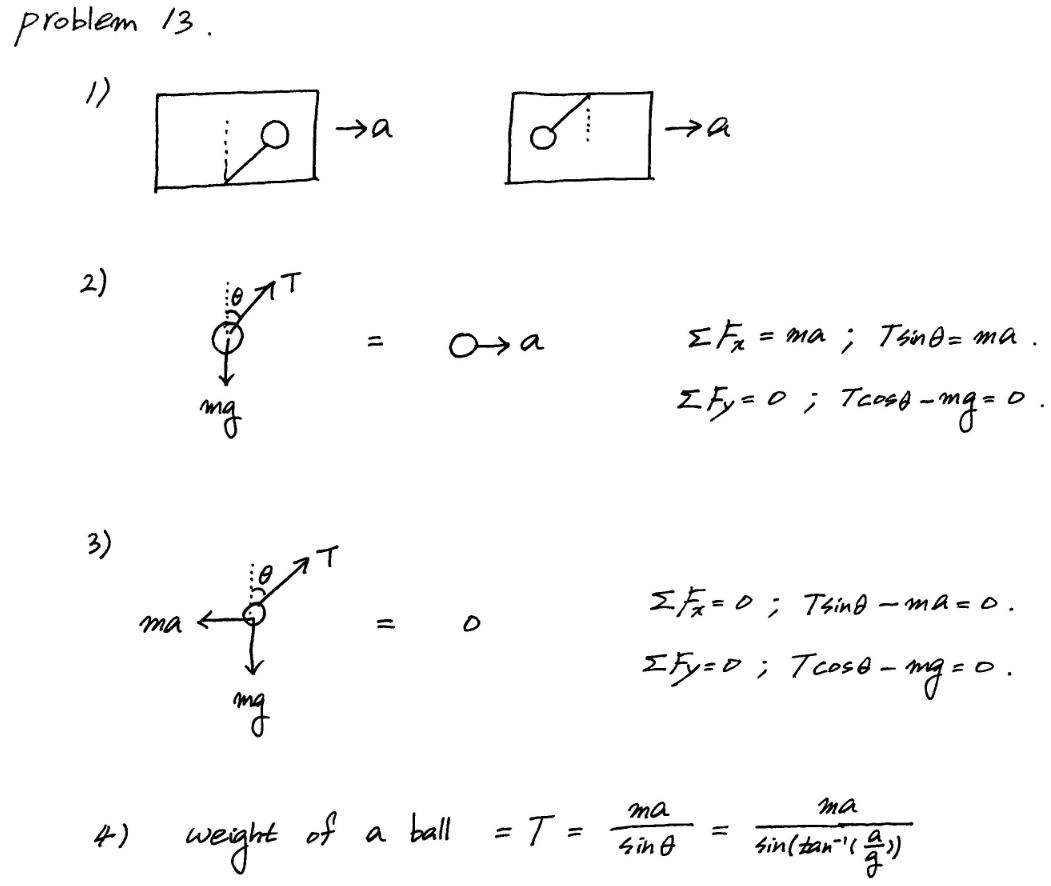 problem 13.
1) →a →a
2) θ T mg = →a ΣFx = ma ; Tsinθ = ma .
ΣFy = 0 ; Tcosθ - mg = 0 .
3) θ T ma mg = 0 ΣFx = 0 ; Tsinθ - ma = 0 .
ΣFy = 0 ; Tcosθ - mg = 0 .
4) weight of a ball = T = ma/sinθ = ma/sin(tan⁻¹(a/g))